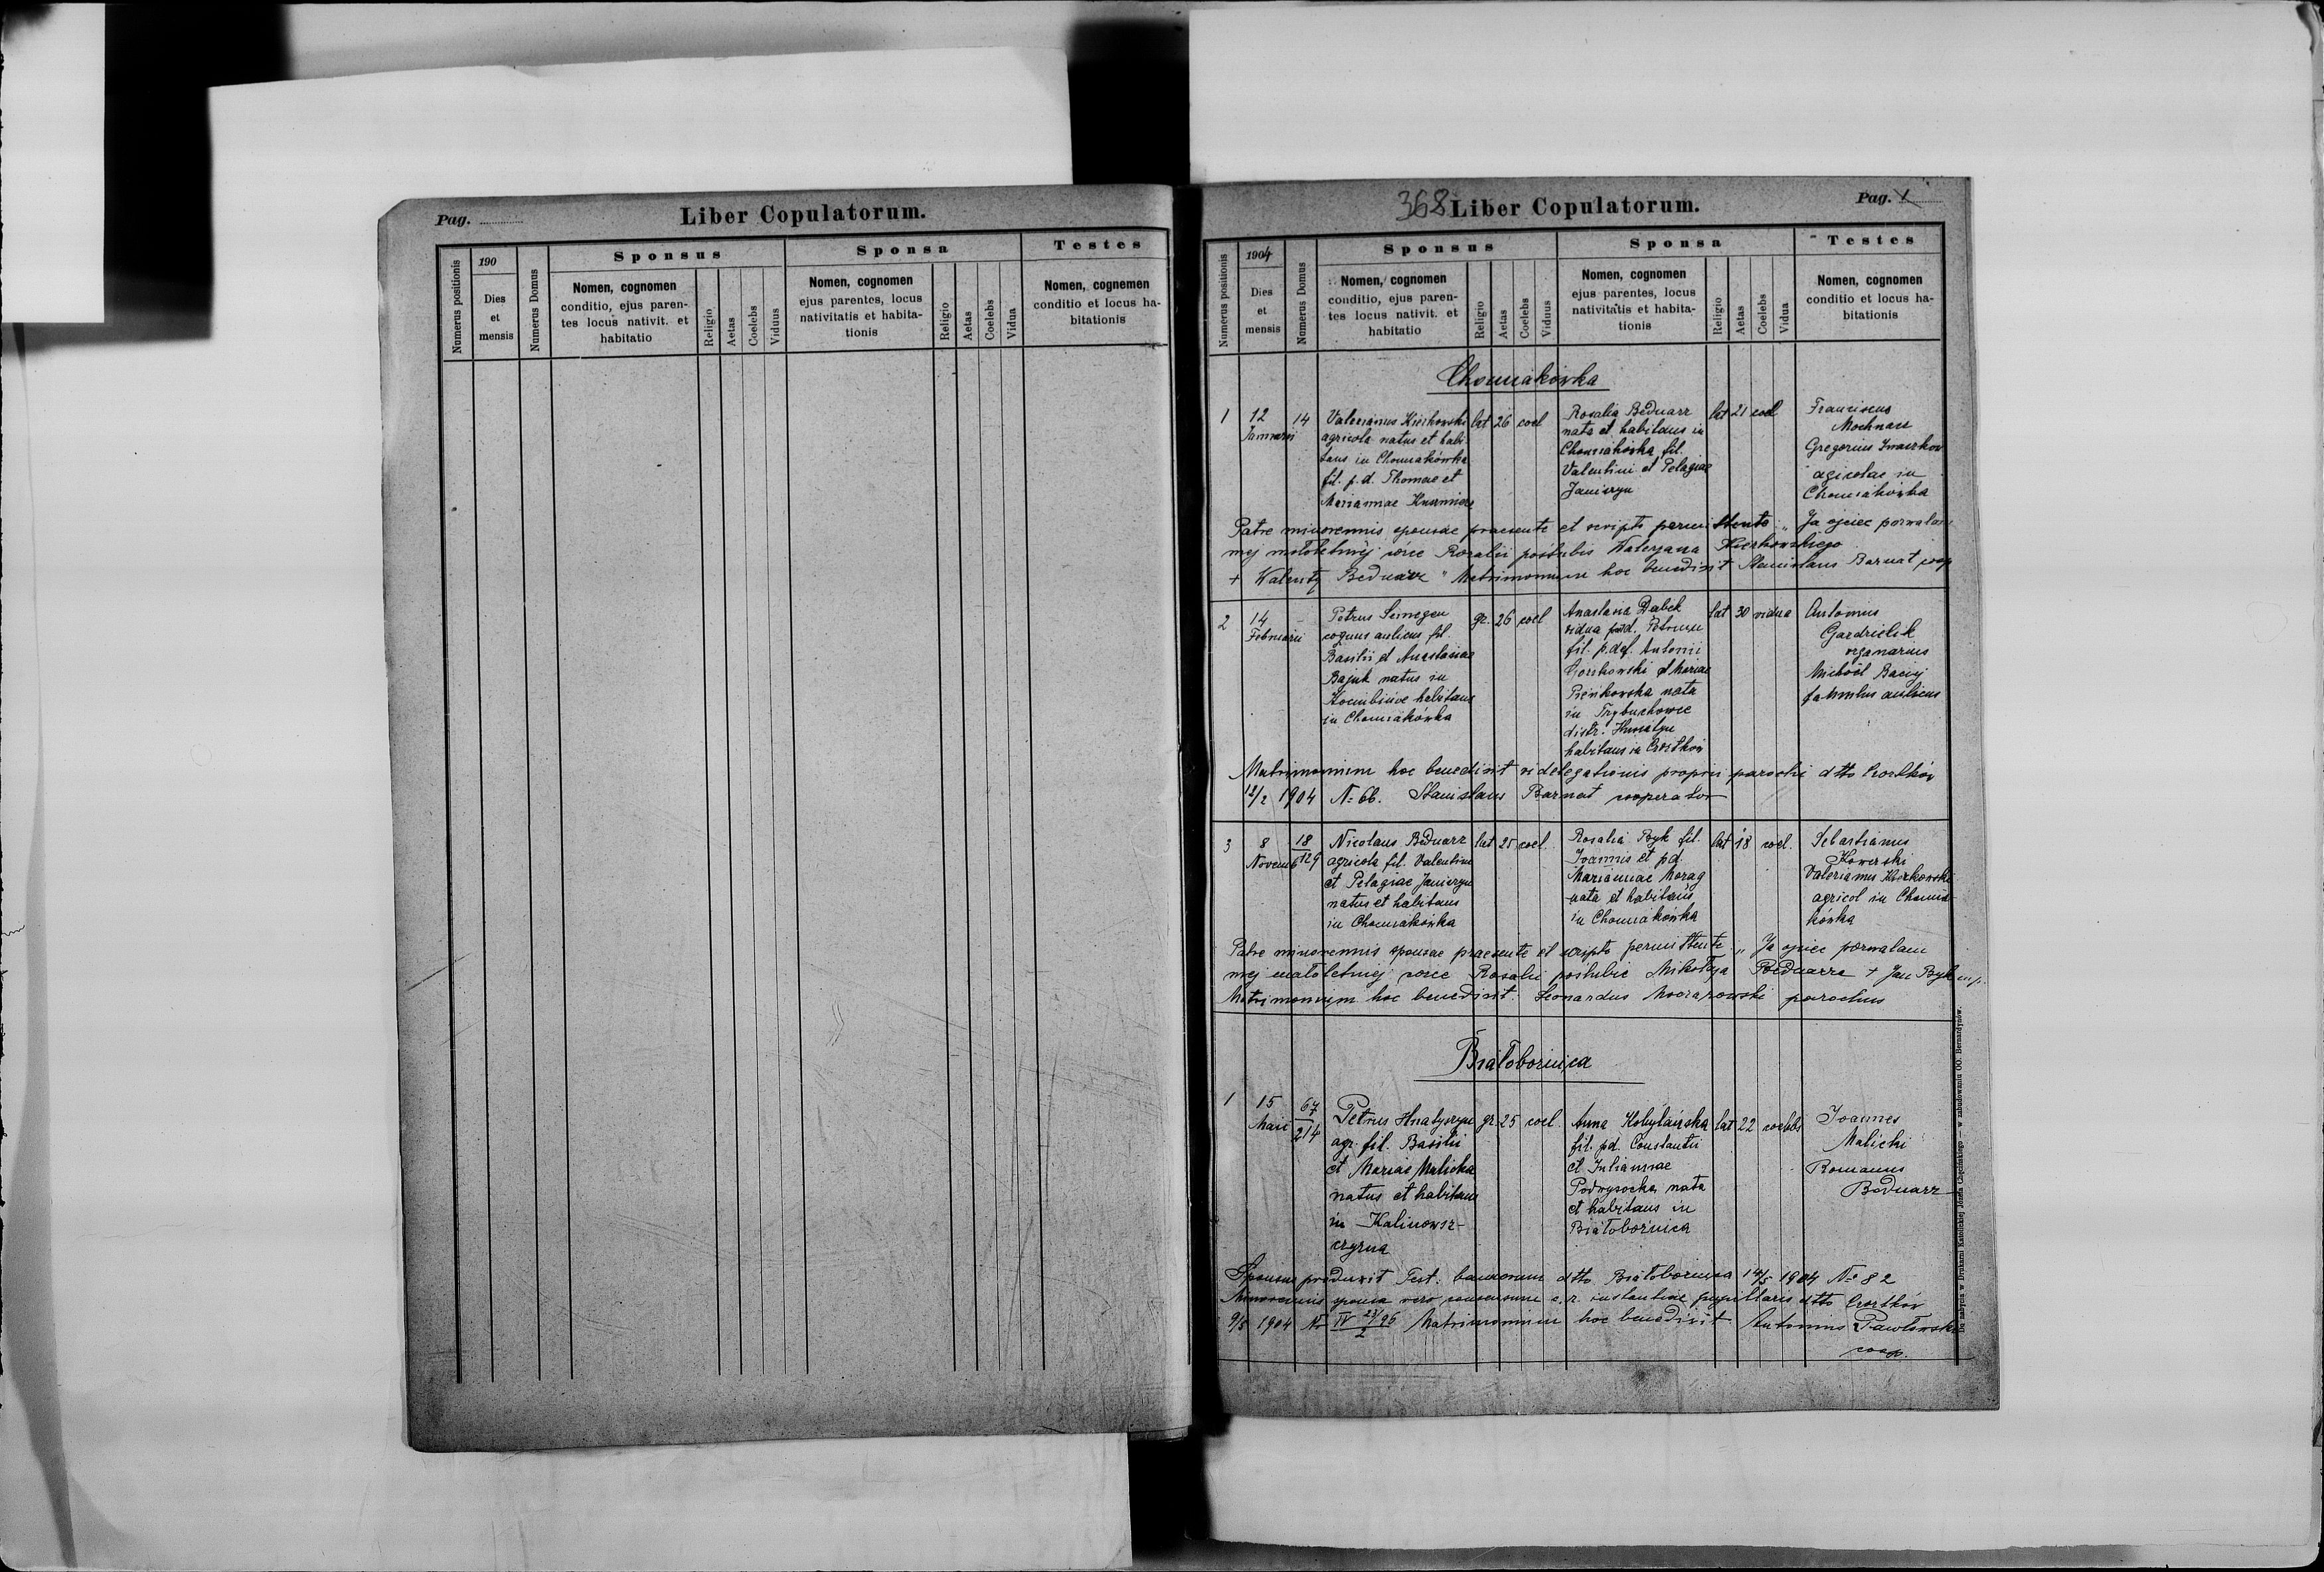 Pag.
Liber Copulatorum.
Numerus positionis
190
Dies
et
mensis
Numerus Domus
Sponsus
Nomen, cognomen
conditio, ejus paren-
tes locus nativit. et
habitatio
Religio
Aetas
Coelebs
Viduus
Sponsa
Nomen, cognomen
ejus parentes, locus
nativitatis et habita-
tionis
Religio
Aetas
Coelebs
Vidua
Testes
Nomen, cognemen
conditio et locus ha-
bitationis
368 Liber Copulatorum.
Pag. 1
Numerus positionis
1904
Dies
et
mensis
Numerus Domus
Sponsus
Nomen, cognomen
conditio, ejus paren-
tes locus nativit. et
habitatio
Religio
Aetas
Coelebs
Viduus
Sponsa
Nomen, cognomen
ejus parentes, locus
nativitatis et habita-
tionis
Religio
Aetas
Coelebs
Vidua
Testes
Nomen, cognomen
conditio et locus ha-
bitationis
Chomiakówka
1
12
Januarii
14
Valerianus
agricola natus et habi
tans in Chomiakówka
fil. p. d. Thomae et
Mariannae
lat
26
coel
Rosalia Bednarz
nata et habitans in
Chomiakówka fil.
Valentini et Pelagiae
Janiszyn
lat
21
coel
Franciscus
Gregorius
agricolae in
Chomiakówka
Patre minorennis sponsae praesente et scripto permittente „ Ja ojciec pozwalam
mej małoletniej córce Rozalii poślubić Waleryana
+ Walenty Bednarz " Matrimonium hoc benedixit Stanislaus Barnat coop
2
14
Februarii
Petrus
coquus aulicus fil.
Basilii et Anastasiae
Bajuk natus in
habitans
in Chomiakówka
gr.
26
coel
Anastasia Dąbek
vidua
fil. p. def. Antonii
et Mariae
Pieńkowska nata
in Trybuchowce
distr. Husiatyn
habitans in Czortków
lat
30
vidua
Antonius
organarius
Michael
famulus aulicus
Matrimonium hoc benedixit vi delegationis proprii parochi dtto Czortków
12/2 1904 N= 66. Stanislaus Barnat cooperator
3
8
Novemb
18
129
Nicolaus Bednarz
agricola fil. Valentini
et Pelagiae Janiszyn
natus et habitans
in Chomiakówka
lat
25
coel.
Rosalia Byk fil.
Joannis et p.d.
Mariannae Morąg
nata et habitans
in Chomiakówka
lat
18
coel.
Sebastianus
Valerianus
agricol in Chomia
kówka
Patre minorennis sponsae praesente et scripto permittente „ Ja ojciec pozwalam
mej małoletniej córce Rosalii poślubić Mikołaja Bednarza + Jan Byk mp.
Matrimonium hoc benedixit. Leonardus parochus
Białobożnica
1
15
Maii
67
214
Petrus Hnatyszyn
agr. fil. Basilii
et Mariae Malicka
natus et habitans
in Kalinowsz-
czyzna
gr.
25
coel.
Anna Kobylańska
fil. pd. Constantii
et Juliannae
Podwysocka nata
et habitans in
Białobożnica
lat
22
coelebs
Joannes
Malicki
Romanus
Bednarz
Sponsus produxit Test. bannorum dtto Białobożnica 14/5 1904 N= 82
Minorennis sponsa vero consensum c. r. instantiae pupillaris dtto Czortków
9/5 1904 Nr IV 23/96 2 Matrimonium hoc benedixit Antonius Pawłowski
coop.
Do nabycia w Drukarni Katolickiej Józefa Chęcińskiego — w zabudowaniu OO. Bernardynów.